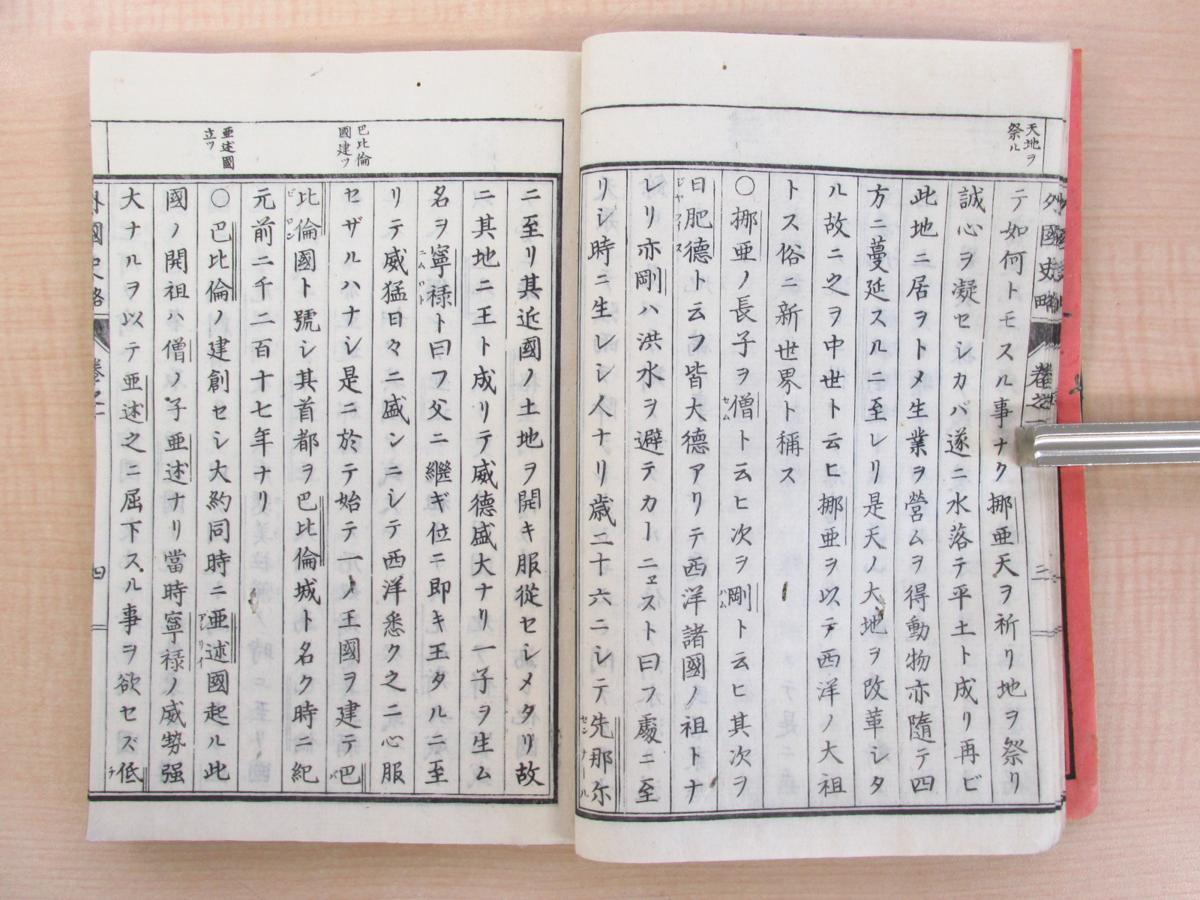 天地ヲ
祭ル
外國史略 卷之一 三
テ如何トモスル事ナク挪亜天ヲ祈リ地ヲ祭リ
誠心ヲ凝セシカバ遂ニ水落テ平土ト成リ再ビ
此地ニ居ヲトメ生業ヲ營ムヲ得動物亦隨テ四
方ニ蔓延スルニ至レリ是天ノ大地ヲ改革シタ
ル故ニ之ヲ中世ト云ヒ挪亜ヲ以テ西洋ノ大祖
トス俗ニ新世界ト稱ス
〇挪亜ノ長子ヲ僧ト云ヒ次ヲ剛ト云ヒ其次ヲ
セム
ハム
日肥德ト云フ皆大德アリテ西洋諸國ノ祖トナ
ジヤフイス
レリ亦剛ハ洪水ヲ避テカーニヱスト曰フ處ニ至
リシ時ニ生レシ人ナリ歳二十六ニシテ先那尓
センナール
巴比倫
國建ツ
亜述國
立ツ
ニ至リ其近國ノ土地ヲ開キ服從セシメタリ故
ニ其地ニ王ト成リテ威德盛大ナリ一子ヲ生ム
名ヲ寧禄ト曰フ父ニ繼ギ位ニ即キ王タルニ至
ニムロト
リテ威猛日々ニ盛ンニシテ西洋悉ク之ニ心服
セザルハナシ是ニ於テ始テ一ノ王國ヲ建テ巴
バ
比倫國ト號シ其首都ヲ巴比倫城ト名ク時ニ紀
ビロン
元前二千二百十七年ナリ
〇巴比倫ノ建創セシ大約同時ニ亜述國起ル此
アシリイ
國ノ開祖ハ僧ノ子亜述ナリ當時寧禄ノ威勢强
大ナルヲ以テ亜述之ニ屈下スル事ヲ欲セズ低
テ
外國史略 卷之一 四